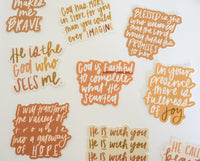 makes me
BRAVE
God has MORE
in store for you
than you've called
ever IMAGINE
BLESSED is she
who
PROMISES
to her
He is the
God who
SEES me
God is
FAITHFUL
to complete
what He
STARTED
In your
presence
there is
fullness
of joy
I will transform
the valley of
trouble
into a gateway
of HOPE
He is with you
He is with you
He is with you